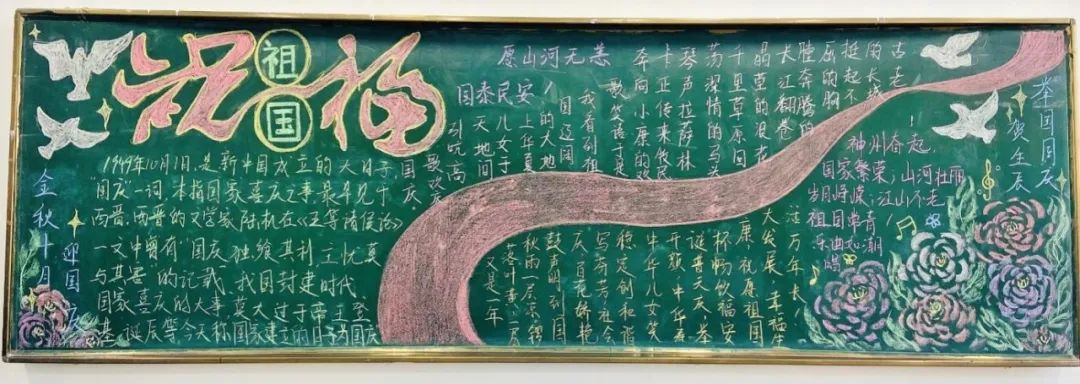 祝福
祖国
金秋十月
迎国庆
1949年10月1日,是新中国成立的大日子,
"国庆"一词,本指国家喜庆之事,最早见于
西晋。西晋的文学家陆机在《五等诸侯论》
一文中曾有"国庆独飨其利,主忧莫
与其害"的记载,我国封建时代、
国家喜庆的大事,莫大过于帝王登
基、诞辰等。今天称国家建立的日子为国庆
愿山河无恙
国泰民安!
古老
的长城
挺起不
屈的胸
膛奔腾的
长江翻卷
晶莹的浪花
千里草原回
荡深情的马头
琴声拉萨林
卡正传来牧民
奔向小康的欢
歌笑语于是
我看到祖
国辽阔
的大地
上华夏
儿女于
天地间
引吭高
歌欢庆
国庆
万年长!
幸福生
大发展,愿祖国
康,祝愿祖国
杯畅饮福安
诞普天庆,举
开颜,中华寿
中华儿女笑
稳定创和谐
写芬芳社会
庆,百花娇艳
鼓声鸣到国
秋雨尽锣
落叶黄一层
又是一年
神州奋起,
国家繁荣;山河壮丽
岁月峥嵘;江山不老
祖国常青!
乐曲如潮
唱
举国同庆
贺生辰